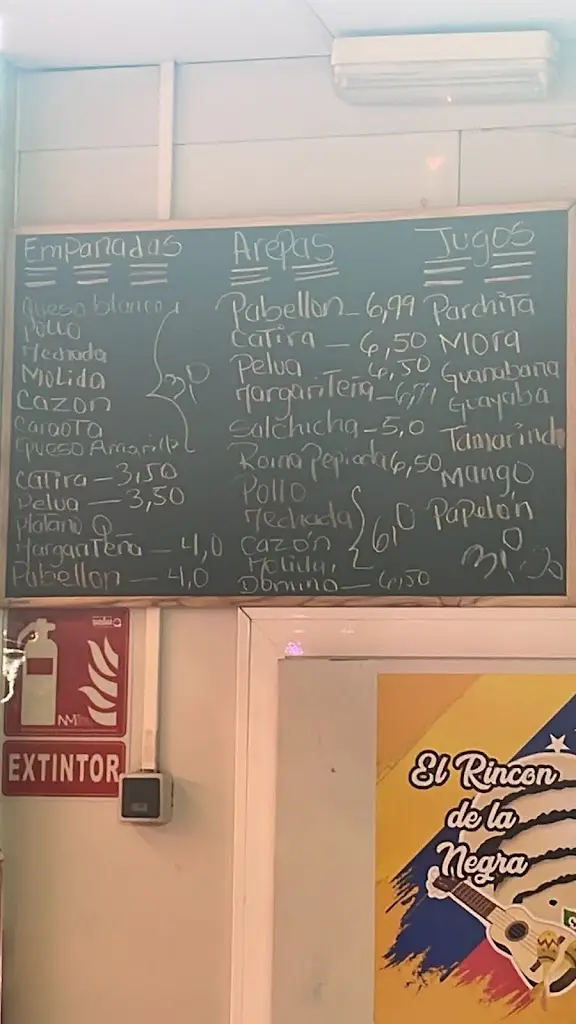 Empanadas
Queso blanco
Pollo
Mechada
Molida
Cazon
Caraota
Queso Amarillo
3,0
Catira - 3,50
Pelua - 3,50
Platano Q
Margariteña - 4,0
Pabellon - 4,0
Arepas
Pabellon - 6,99
Catira - 6,50
Pelua 6,50
Margariteña - 6,99
Salchicha - 5,0
Reina Pepiada 6,50
Pollo
Mechada
Cazón
Molida
6,0
Domino - 6,50
Jugos
Parchita
Mora
Guanabana
Guayaba
Tamarindo
Mango
Papelón
EXTINTOR
El Rincon
de la
Negra